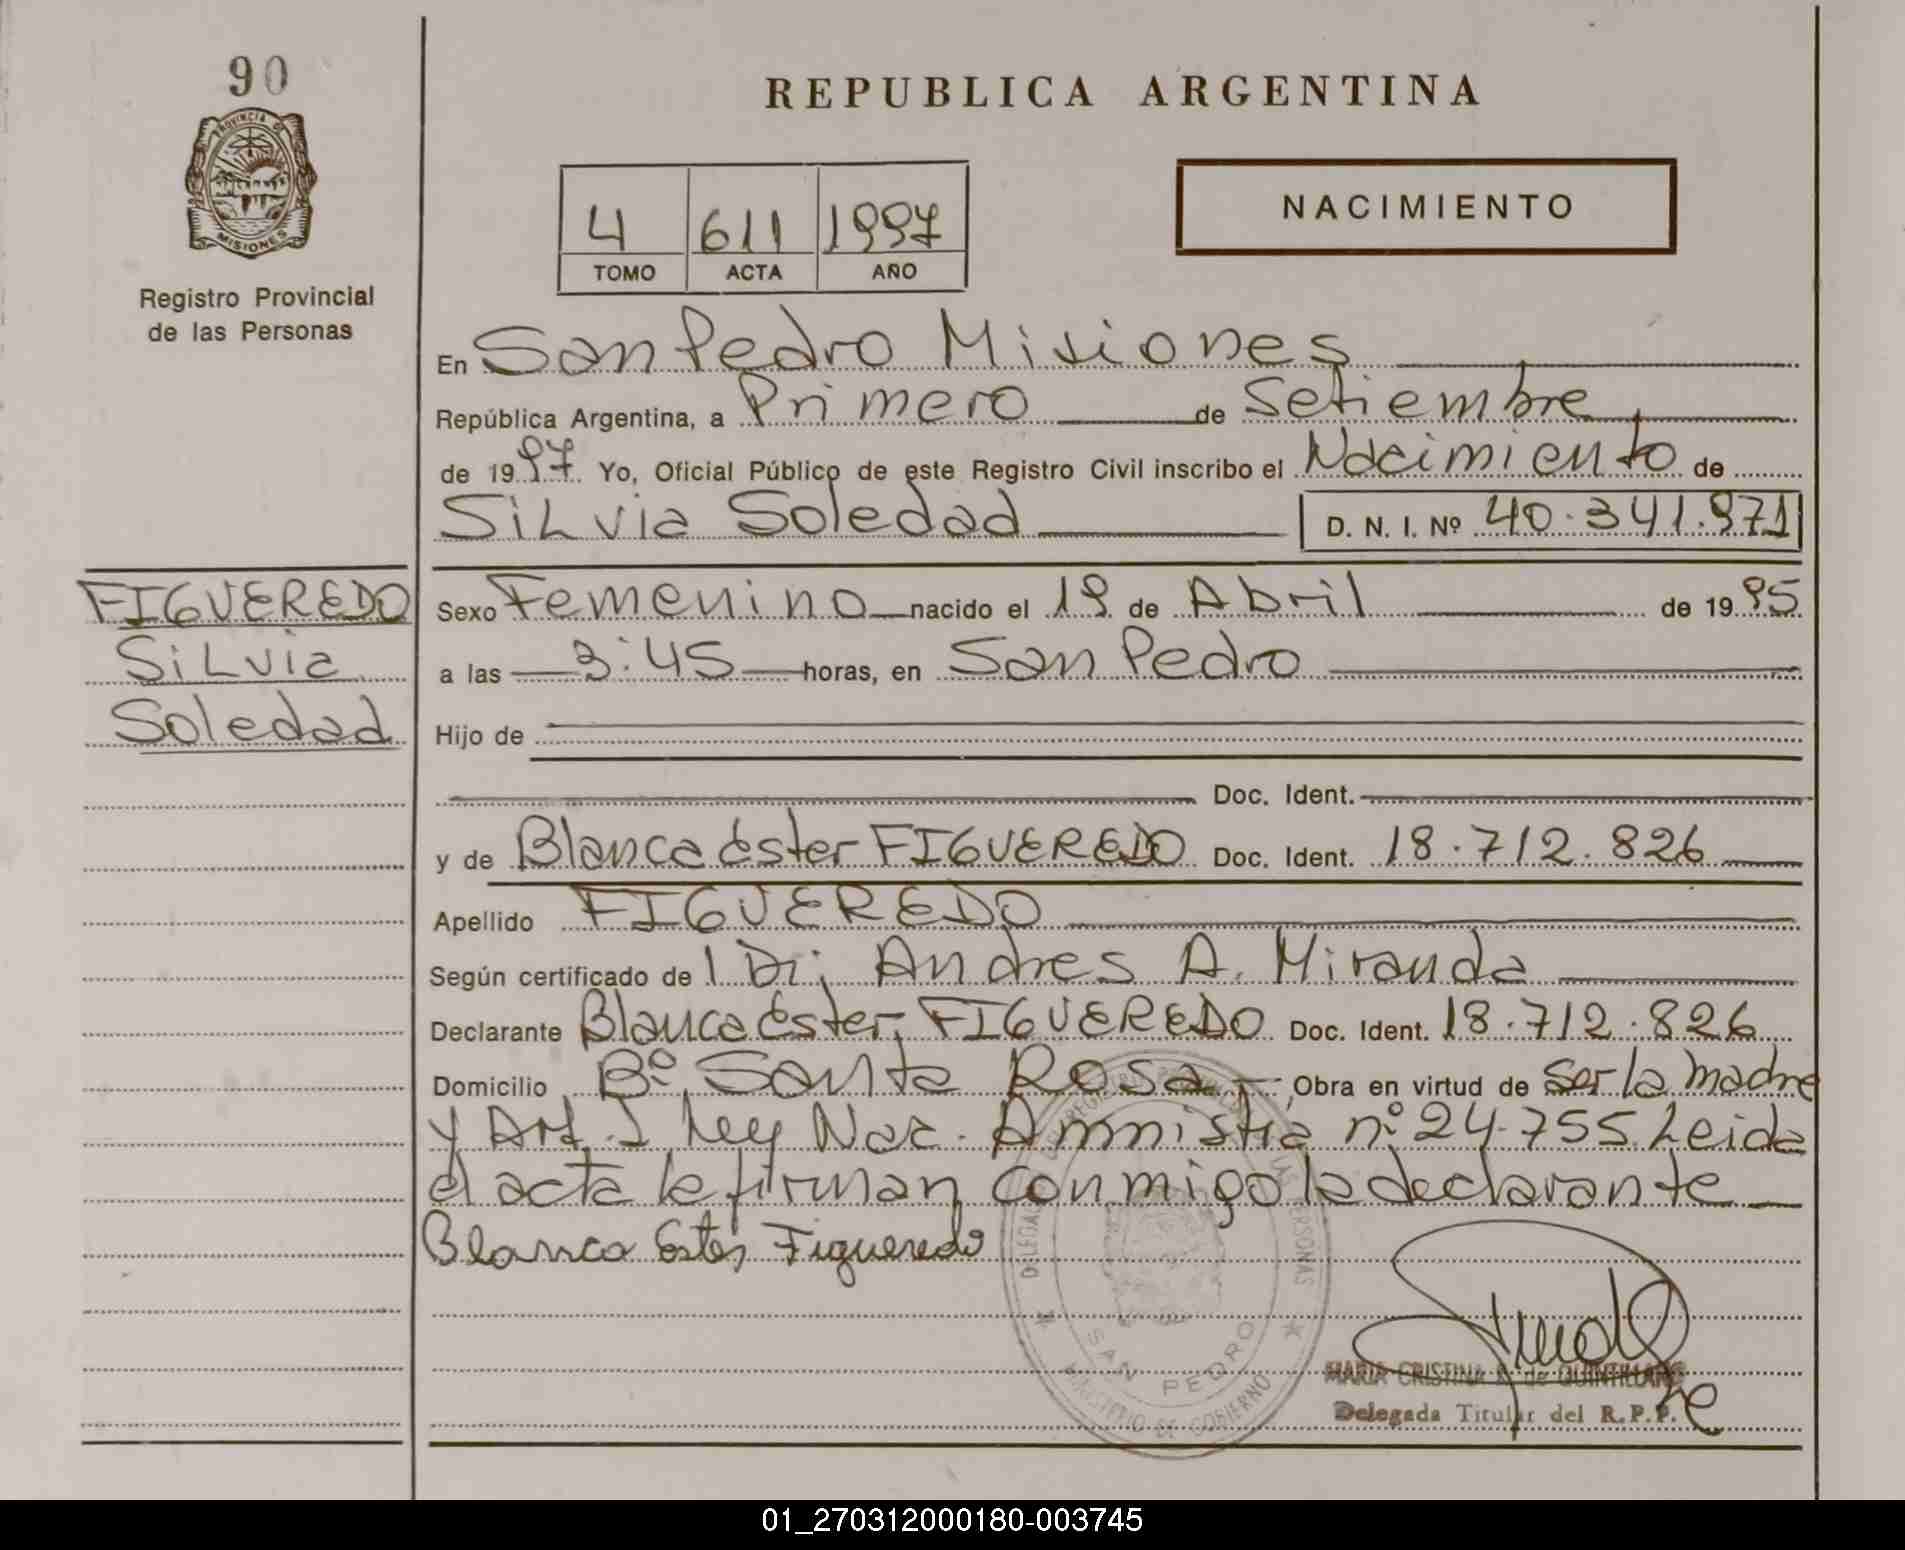 90
PROVINCIA DE
MISIONES
Registro Provincial
de las Personas
FIGUEREDO
Silvia
Soledad
REPUBLICA ARGENTINA
4 611 1997
TOMO ACTA AÑO
NACIMIENTO
En San Pedro Misiones
República Argentina, a Primero de Setiembre
de 1997 Yo, Oficial Público de este Registro Civil inscribo el Nacimiento de
Silvia Soledad D. N. I. Nº 40.341.971
Sexo Femenino nacido el 19 de Abril de 1995
a las 3:45 horas, en San Pedro
Hijo de
Doc. Ident.
y de Blanca Ester FIGUEREDO Doc. Ident. 18.712.826
Apellido FIGUEREDO
Según certificado de Dr. Andres A. Miranda
Declarante Blanca Ester FIGUEREDO Doc. Ident. 18.712.826
Domicilio Bº Santa Rosa Obra en virtud de ser la madre
y Art. 1 Ley Nac. Amnistia nº 24.755. Leida
el acta la firman conmigo la declarante
Blanca Ester Figueredo
SAN PEDRO
MINISTERIO DE GOBIERNO
MARIA CRISTINA de QUINTILLANE
Delegada Titular del R.P.P.
01_270312000180-003745